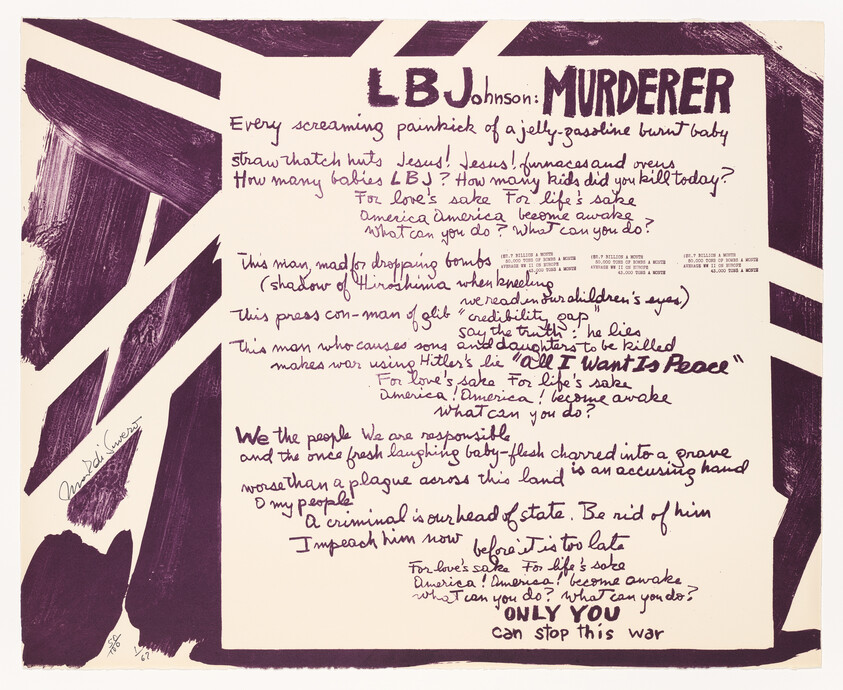 LBJohnson: MURDERER
Every screaming painkick of a jelly-gasoline burnt baby
straw thatch huts Jesus! Jesus! furnaces and ovens
How many babies LBJ? How many kids did you kill today?
For love's sake For life's sake
America America become awake
What can you do? What can you do?
This man, mad for dropping bombs
($2.7 BILLION A MONTH
80,000 TONS OF BOMBS A MONTH
AVERAGE WW II ON EUROPE
42,000 TONS A MONTH
($2.7 BILLION A MONTH
80,000 TONS OF BOMBS A MONTH
AVERAGE WW II ON EUROPE
42,000 TONS A MONTH
($2.7 BILLION A MONTH
80,000 TONS OF BOMBS A MONTH
AVERAGE WW II ON EUROPE
42,000 TONS A MONTH
(shadow of Hiroshima when kneeling
we read in our children's eyes)
This press con-man of glib "credibility gap"
say the truth: he lies
This man who causes sons and daughters to be killed
makes war using Hitler's lie "All I Want Is Peace"
For love's sake For life's sake
America! America! become awake
What can you do?
We the people We are responsible
and the once fresh laughing baby-flesh charred into a grave
worse than a plague across this land is an accusing hand
O my people
A criminal is our head of state. Be rid of him
Impeach him now before it is too late
For love's sake For life's sake
America! America! become awake
What can you do? What can you do?
ONLY YOU
can stop this war
Mark di Suvero
50/100
1/67